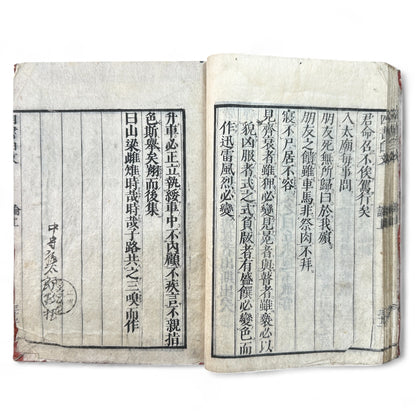 君命召不俟駕行矣
入太廟每事問
朋友死無所歸曰於我殯
朋友之饋雖車馬非祭肉不拜
寢不尸居不容
見齊衰者雖狎必變見冕者與瞽者雖褻必以
貌凶服者式之式負版者有盛饌必變色而
作迅雷風烈必變
升車必正立執綏車中不內顧不疾言不親指
色斯舉矣翔而後集
曰山梁雌雉時哉時哉子路共之三嗅而作